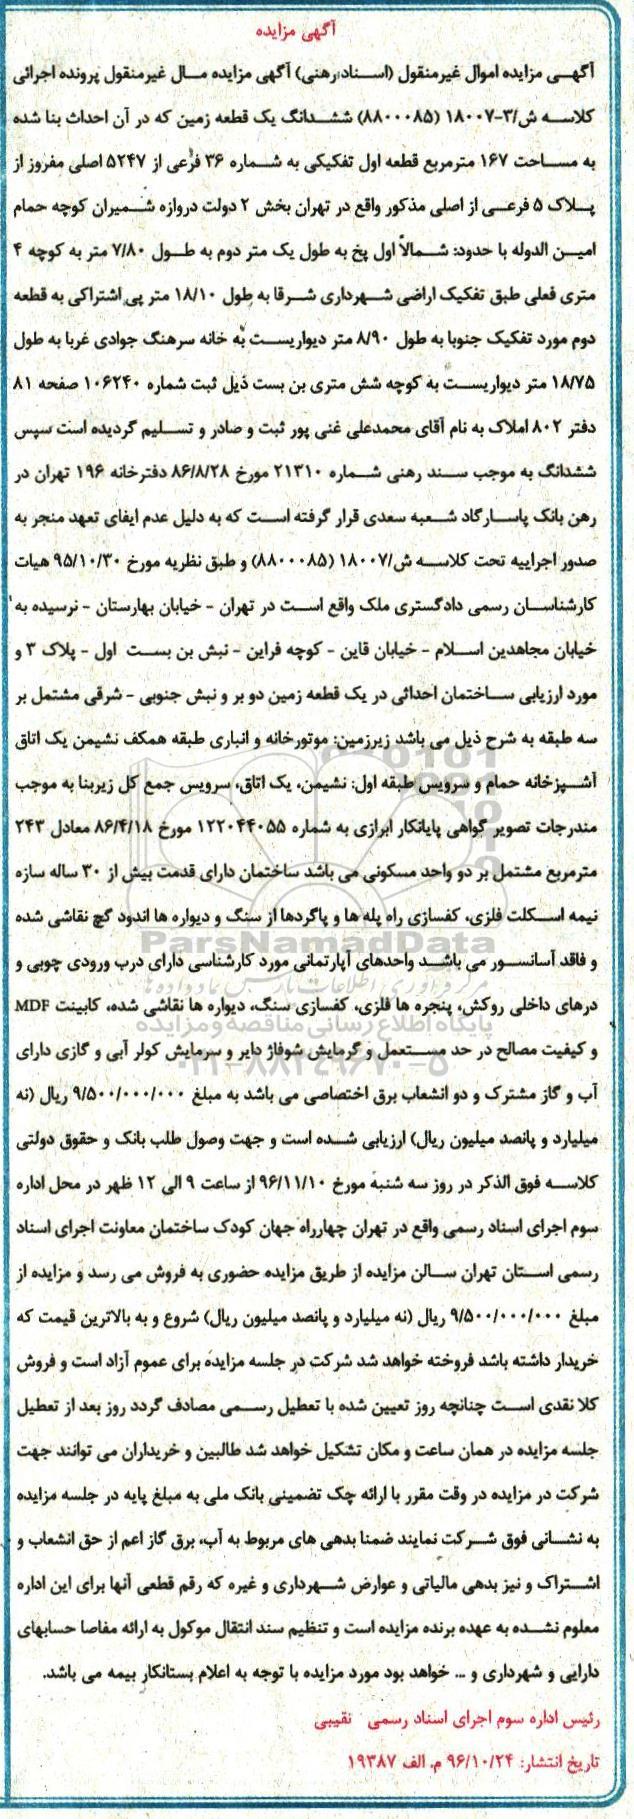 آگهی مزایده
آگهـی مزایده اموال غیرمنقول (اسـناد رهنی) آگهی مزایده مـال غیرمنقول پرونده اجرائی
کلاسـه ش/۳-۱۸۰۰۷ (۸۸۰۰۰۸۵) ششـدانگ یک قطعه زمین که در آن احداث بنا شده
به مسـاحت ۱۶۷ مترمربع قطعه اول تفکیکی به شـماره ۳۶ فرعی از ۵۲۴۷ اصلی مفروز از
پـلاک ۵ فرعـی از اصلی مذکور واقع در تهران بخش ۲ دولت دروازه شـمیران کوچه حمام
امیـن الدوله با حدود: شـمالاً اول پخ به طول یک متر دوم به طـول ۷/۸۰ متر به کوچه ۴
متری فعلی طبق تفکیک اراضی شـهرداری شـرقا به طول ۱۸/۱۰ متر پی اشتراکی به قطعه
دوم مورد تفکیک جنوبا به طول ۸/۹۰ متر دیواریسـت به خانه سرهنگ جوادی غربا به طول
۱۸/۷۵ متر دیواریسـت به کوچه شش متری بن بست ذیل ثبت شماره ۱۰۶۲۴۰ صفحه ۸۱
دفتر ۸۰۲ املاک به نام آقای محمدعلی غنی پور ثبت و صادر و تسـلیم گردیده است سپس
ششدانگ به موجب سـند رهنی شـماره ۲۱۳۱۰ مورخ ۸۶/۸/۲۸ دفترخانه ۱۹۶ تهران در
رهن بانک پاسـارگاد شـعبه سعدی قرار گرفته اسـت که به دلیل عدم ایفای تعهد منجر به
صدور اجراییه تحت کلاسـه ش/۱۸۰۰۷ (۸۸۰۰۰۸۵) و طبق نظریه مورخ ۹۵/۱۰/۳۰ هیات
کارشناسـان رسمی دادگستری ملک واقع اسـت در تهران - خیابان بهارستان - نرسیده به
خیابان مجاهدین اسـلام - خیابان قاین - کوچه فراین - نبش بن بسـت اول - پلاک ۳ و
مورد ارزیابی سـاختمان احداثی در یک قطعه زمین دو بر و نبش جنوبی - شرقی مشتمل بر
سه طبقه به شرح ذیل می باشد زیرزمین: موتورخانه و انباری طبقه همکف نشیمن یک اتاق
آشـپزخانه حمام و سرویس طبقه اول: نشیمن، یک اتاق، سرویس جمع کل زیربنا به موجب
مندرجات تصویر گواهی پایانکار ابرازی به شماره ۱۲۲۰۴۴۰۵۵ مورخ ۸۶/۴/۱۸ معادل ۲۴۳
مترمربع مشتمل بر دو واحد مسکونی می باشد ساختمان دارای قدمت بیش از ۳۰ ساله سازه
نیمه اسـکلت فلزی، کفسازی راه پله ها و پاگردها از سنگ و دیواره ها اندود گچ نقاشی شده
و فاقد آسانسـور می باشـد واحدهای آپارتمانی مورد کارشناسی دارای درب ورودی چوبی و
درهای داخلی روکش، پنجره ها فلزی، کفسازی سنگ، دیواره ها نقاشی شده، کابینت MDF
و کیفیت مصالح در حد مسـتعمل و گرمایش شوفاژ دایر و سرمایش کولر آبی و گازی دارای
آب و گاز مشترک و دو انشعاب برق اختصاصی می باشد به مبلغ ۹/۵۰۰/۰۰۰/۰۰۰ ریال (نه
میلیارد و پانصد میلیون ریال) ارزیابی شـده است و جهت وصول طلب بانک و حقوق دولتی
کلاسـه فوق الذکر در روز سه شنبه مورخ ۹۶/۱۱/۱۰ از ساعت ۹ الی ۱۲ ظهر در محل اداره
سوم اجرای اسناد رسمی واقع در تهران چهارراه جهان کودک ساختمان معاونت اجرای اسناد
رسمی اسـتان تهران سـالن مزایده از طریق مزایده حضوری به فروش می رسد و مزایده از
مبلغ ۹/۵۰۰/۰۰۰/۰۰۰ ریال (نه میلیارد و پانصد میلیون ریال) شروع و به بالاترین قیمت که
خریدار داشته باشد فروخته خواهد شد شرکت در جلسه مزایده برای عموم آزاد است و فروش
کلا نقدی اسـت چنانچه روز تعیین شده با تعطیل رسـمی مصادف گردد روز بعد از تعطیل
جلسه مزایده در همان ساعت و مکان تشکیل خواهد شد طالبین و خریداران می توانند جهت
شرکت در مزایده در وقت مقرر با ارائه چک تضمینی بانک ملی به مبلغ پایه در جلسه مزایده
به نشـانی فوق شـرکت نمایند ضمنا بدهی های مربوط به آب، برق گاز اعم از حق انشعاب و
اشـتراک و نیز بدهی مالیاتی و عوارض شـهرداری و غیره که رقم قطعی آنها برای این اداره
معلوم نشـده به عهده برنده مزایده است و تنظیم سند انتقال موکول به ارائه مفاصا حسابهای
دارایی و شهرداری و ... خواهد بود مورد مزایده با توجه به اعلام بستانکار بیمه می باشد.
رئیس اداره سوم اجرای اسناد رسمی نقیبی
تاریخ انتشار: ۹۶/۱۰/۲۴ م. الف ۱۹۳۸۷
ParsNamadData
مرکز فرآوری اطلاعات پارس نماد داده ها
پایگاه اطلاع رسانی مناقصه و مزایده
۰۲۱-۸۸۳۴۹۶۷۰-۵